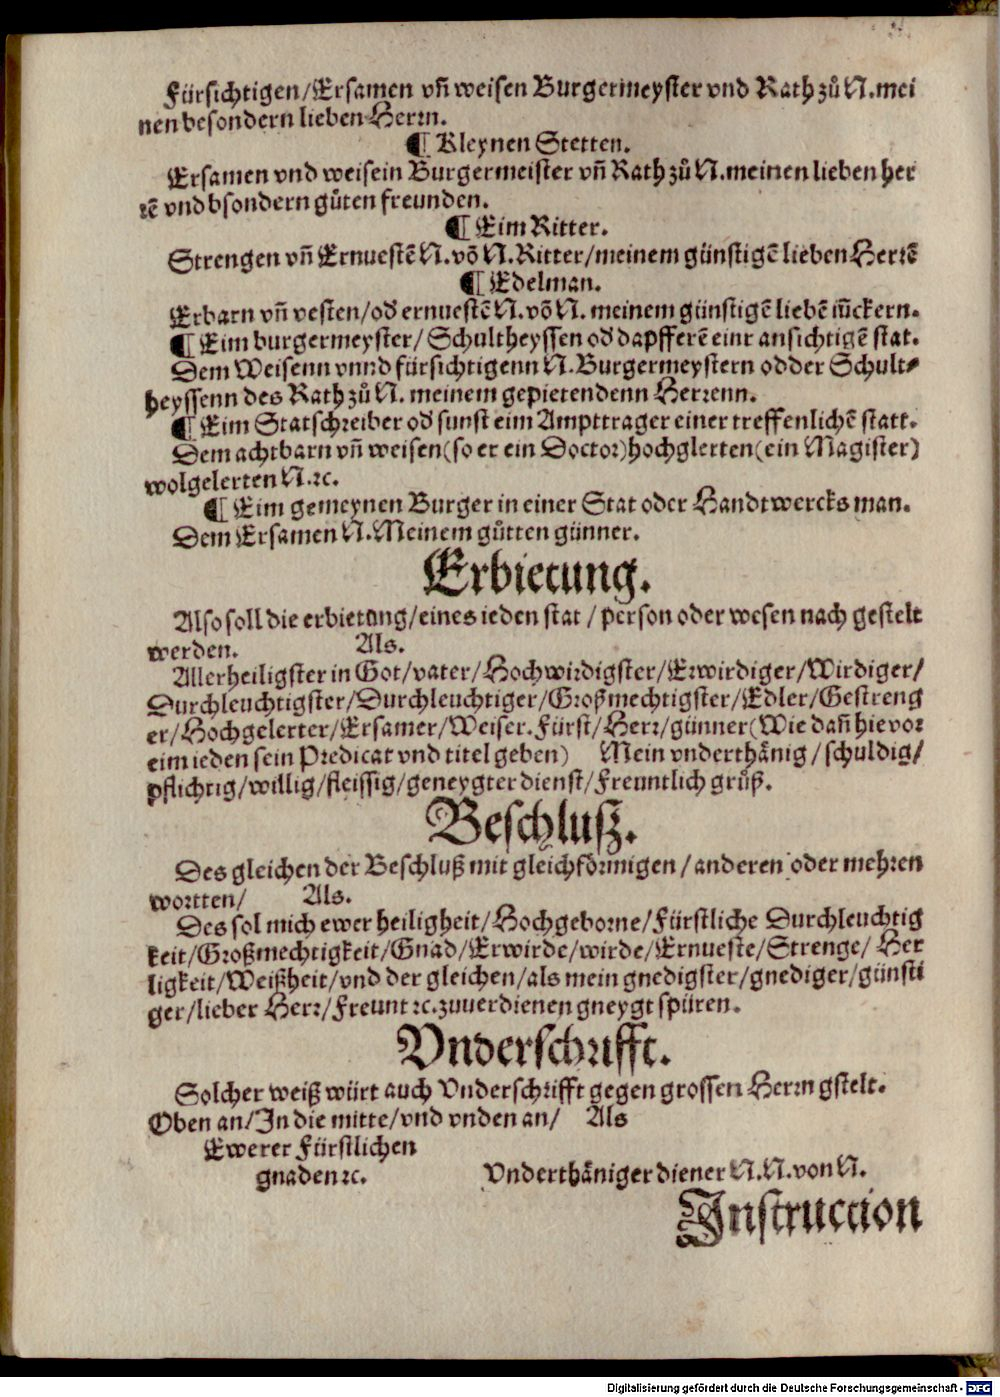 Fürsichtigen/Ersamen vñ weisen Burgermeyster vnd Rath zů N. mei
nen besondern lieben Herrn.
¶ Kleynen Stetten.
Ersamen vnd weisein Burgermeister vñ Rath zů N. meinen lieben her
rẽ vnd bsondern gůten freunden.
¶ Eim Ritter.
Strengen vñ Ernuestẽ N. võ N. Ritter/meinem günstigẽ lieben Herrẽ
¶ Edelman.
Erbarn vñ vesten/od̕ ernuestẽ N. võ N. meinem günstigẽ liebẽ iũckern.
¶ Eim burgermeyster/ Schultheyssen od̕ dapfferẽ einr ansichtigẽ stat.
Dem Weisenn vnnd fürsichtigenn N. Burgermeystern odder Schult⸗
heyssenn des Rath zů N. meinem gepietendenn Herrenn.
¶ Eim Statschreiber od̕ sunst eim Ampttrager einer treffenlichẽ statt.
Dem achtbarn vñ weisen(so er ein Doctor)hochglerten(ein Magister)
wolgelerten N. ꝛc.
¶ Eim gemeynen Burger in einer Stat oder Handtwercks man.
Dem Ersamen N. Meinem gůtten günner.
Erbietung.
Also soll die erbietung/eines ieden stat / person oder wesen nach gestelt
werden. Als.
Allerheiligster in Got/vater/Hochwirdigster/Erwirdiger/Wirdiger/
Durchleuchtigster/Durchleuchtiger/Großmechtigster/Edler/Gestreng
er/Hochgelerter/Ersamer/Weiser. Fürst/Herr/günner(Wie dañ hie vor
eim ieden sein Predicat vnd titel geben) Mein vnderthånig / schuldig/
pflichtig/willig/fleissig/geneygter dienst/Freuntlich grůß.
Beschluß.
Des gleichen der Beschluß mit gleichförmigen / anderen oder mehren
wortten/ Als.
Des sol mich ewer heiligheit/Hochgeborne/Fürstliche Durchleuchtig
keit/Großmechtigkeit/Gnad/Erwirde/wirde/Ernueste/Strenge/ Her
ligkeit/Weißheit/vnd der gleichen/als mein gnedigster/gnediger/günsti
ger/lieber Herr/Freunt ꝛc. zuuerdienen gneygt spüren.
Vnderschrifft.
Solcher weiß würt auch Vnderschrifft gegen grossen Herrn gstelt.
Oben an/In die mitte/vnd vnden an/ Als
Ewerer Fürstlichen
gnaden ꝛc. Vnderthåniger diener N. N. von N.
Instruction
Digitalisierung gefördert durch die Deutsche Forschungsgemeinschaft - DFG